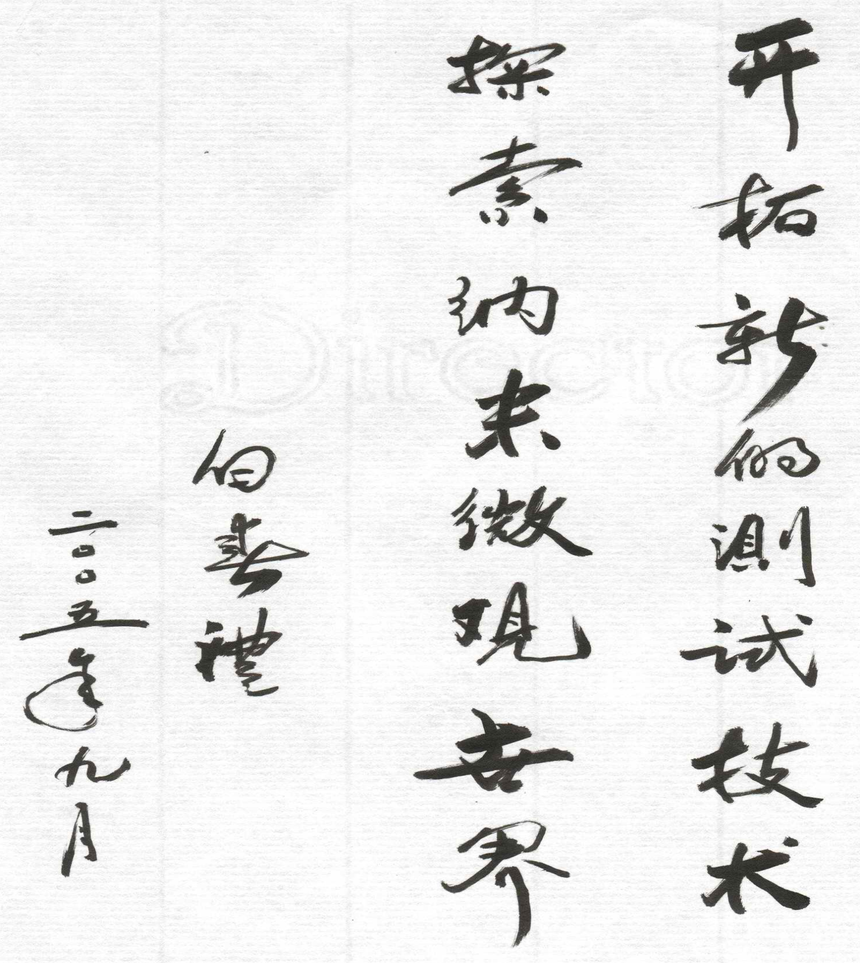 开拓新的测试技术
探索纳米微观世界
白春禮
二〇〇五年九月
Director